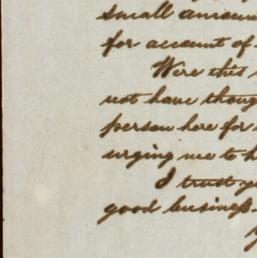 small amoun
for account of
Were this
not have thoug
person here for
urging me to h
I trust y
good business.
Y